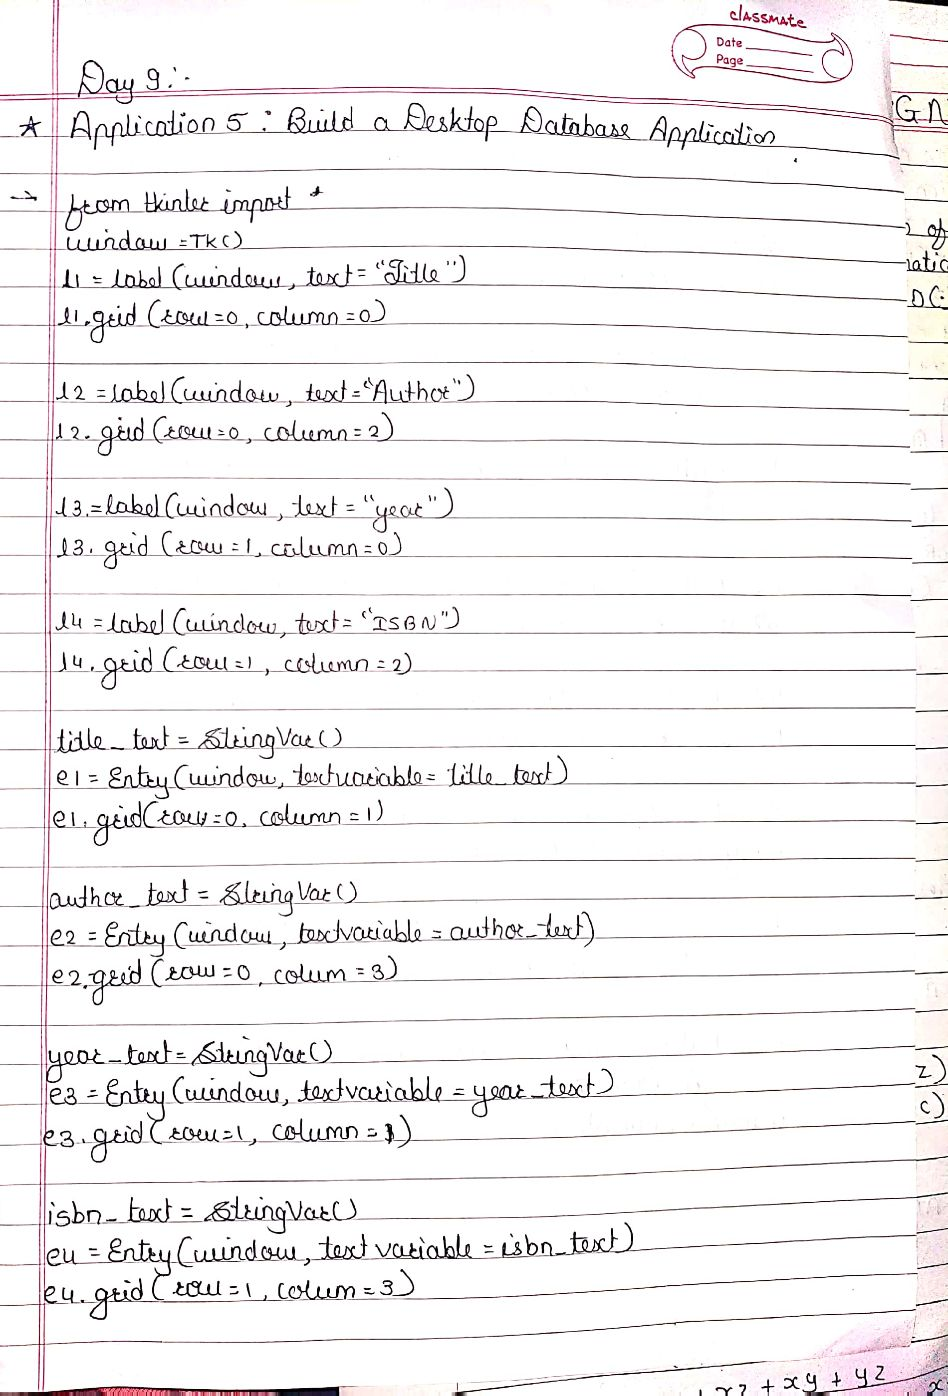 classmate
Date
Page
Day 9:-
★ Application 5 : Build a Desktop Database Application
→ from tkinter import *
window =TK()
l1 = label (window, text= "Title")
l1.grid (row=0, column=0)
l2 =label (window, text="Author")
l2. grid (row=0, column=2)
l3.=label (window, text = "year")
l3. grid (row=1, column=0)
l4 =label (window, text= "ISBN")
l4. grid (row=1, column=2)
title_text = StringVar()
e1 = Entry (window, textvariable= title_text)
e1. grid(row=0, column=1)
author_text = StringVar()
e2 = Entry (window, textvariable = author_text)
e2.grid (row=0, colum =3)
year_text= StringVar()
e3 = Entry (window, textvariable = year_text)
e3. grid (row=1, column=1)
isbn_text = StringVar()
e4 = Entry (window, text variable = isbn_text)
e4. grid (row=1, colum=3)
GN
of
DC:
z)
c)
xz + xy + yz